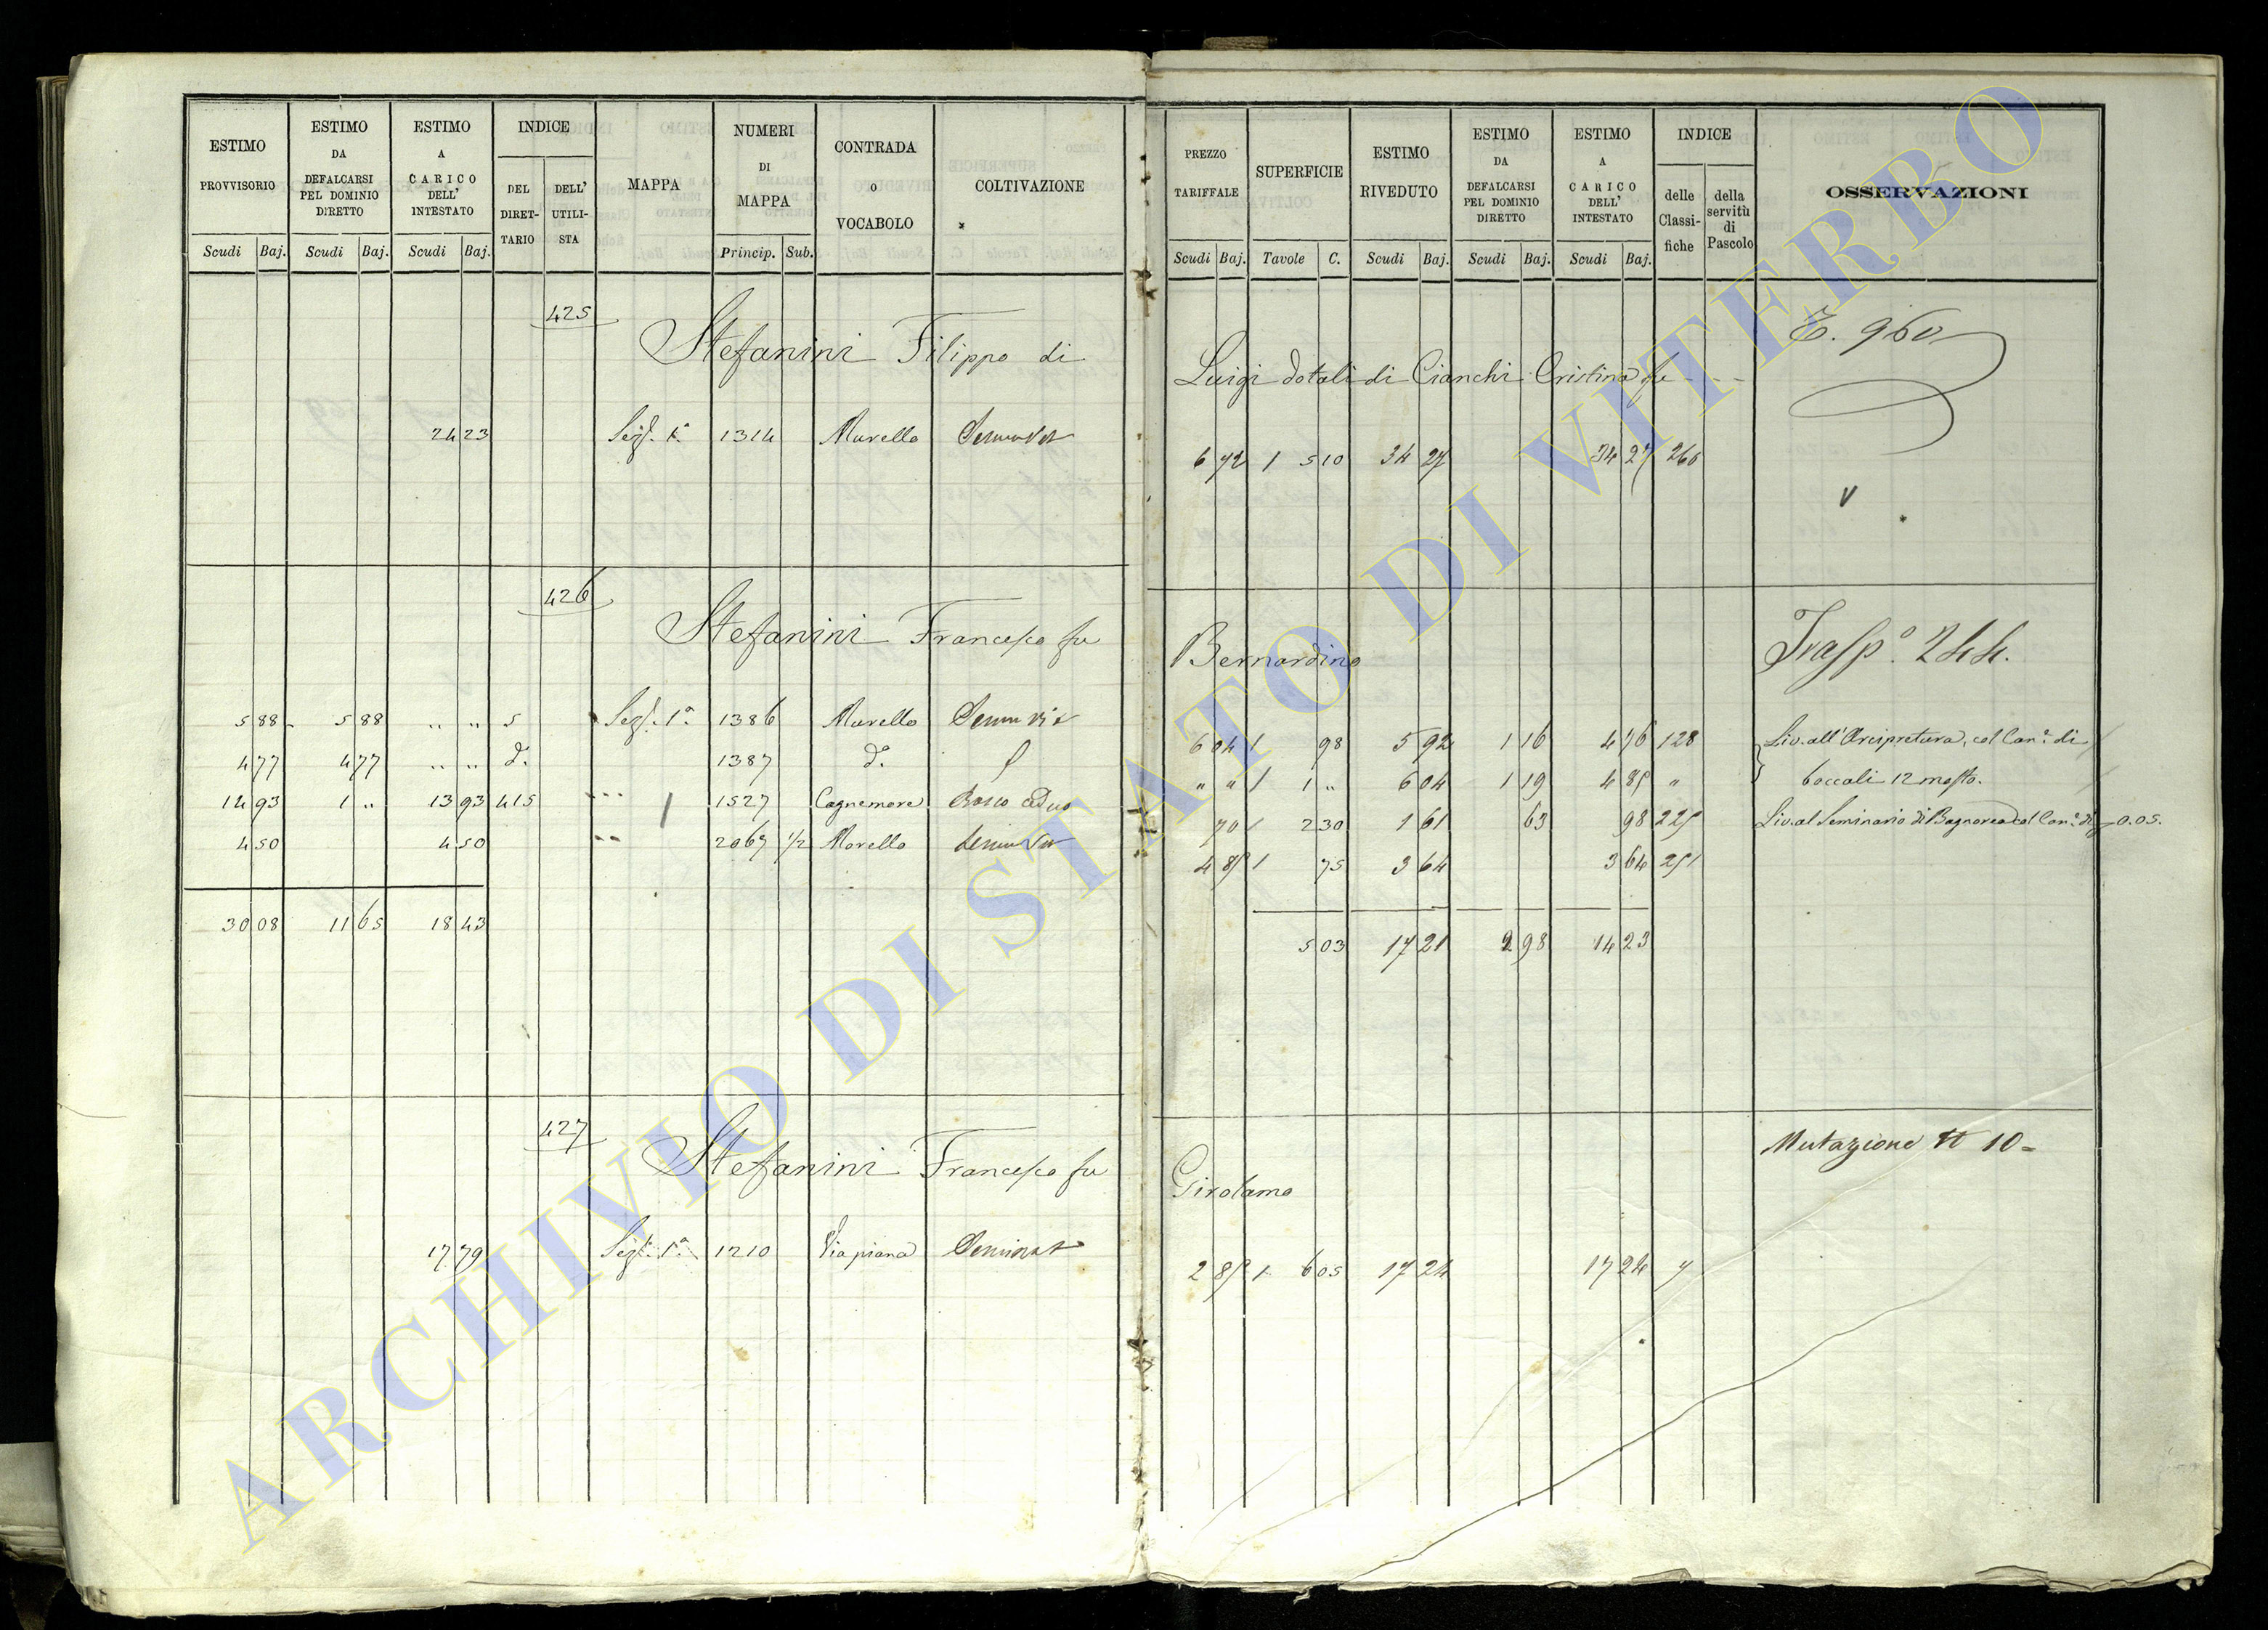 ESTIMO PROVVISORIO | ESTIMO DA DEFALCARSI PEL DOMINIO DIRETTO | ESTIMO A CARICO DELL' INTESTATO | INDICE | MAPPA | NUMERI DI MAPPA | CONTRADA O VOCABOLO | COLTIVAZIONE | PREZZO TARIFFALE | SUPERFICIE | ESTIMO RIVEDUTO | ESTIMO DA DEFALCARSI PEL DOMINIO DIRETTO | ESTIMO A CARICO DELL' INTESTATO | INDICE | OSSERVAZIONI
DEL DIRET-TARIO | DELL' UTILI-STA | delle Classi-fiche | della servitù di Pascolo
Scudi | Baj. | Scudi | Baj. | Scudi | Baj. | Princip. | Sub. | Scudi | Baj. | Tavole | C. | Scudi | Baj. | Scudi | Baj. | Scudi | Baj.
425
Stefanini Filippo di Luigi dotali di Cianchi Cristina fu
960
24 23 | Sez. 1ª | 1314 | Murello | Seminat | 6 72 | 1 | 5 10 | 34 27 | 34 27 | 266
V
426
Stefanini Francesco fu Bernardino
Trasp.º 244.
5 88 | 5 88 | " " | 5 | Sez. 1ª | 1386 | Murello | 6 04 | 1 | 98 | 5 92 | 1 16 | 4 76 | 128 | Liv. all'Arcipretura, col Can.e di
4 77 | 4 77 | " " | d.º | 1387 | d.º | " " | 1 | 1 " | 6 04 | 1 19 | 4 85 | " | boccali 12 mosto.
14 93 | 1 " | 13 93 | 415 | 1527 | Cagnemore | Bosco ceduo | 70 | 1 | 2 30 | 1 61 | 63 | 98 | 225 | Liv. al Seminario di Bagnorea col Can.e di 0.05.
4 50 | 4 50 | 2067 | 1/2 | Morello | 4 85 | 1 | 75 | 3 64 | 3 64 | 251
30 08 | 11 65 | 18 43 | 5 03 | 17 21 | 2 98 | 14 23
427
Stefanini Francesco fu Girolamo
Mutazione N 10 =
17 79 | Sez. 1ª | 1210 | Viapiana | Seminat | 2 85 | 1 | 6 05 | 17 24 | 17 24 | 7
ARCHIVIO DI STATO DI VITERBO